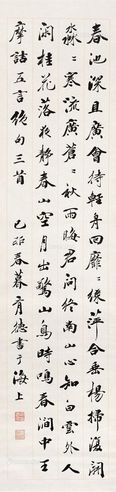 春池深且廣會待輕舟回靡〻綠萍合垂楊掃復開
淼〻寒流廣蒼〻秋雨晦君問終南山心知白雲外人
閑桂花落夜靜春山空月出驚山鳥時鳴春澗中王
摩詰五言絕句三首 己卯春暮育德書于海上